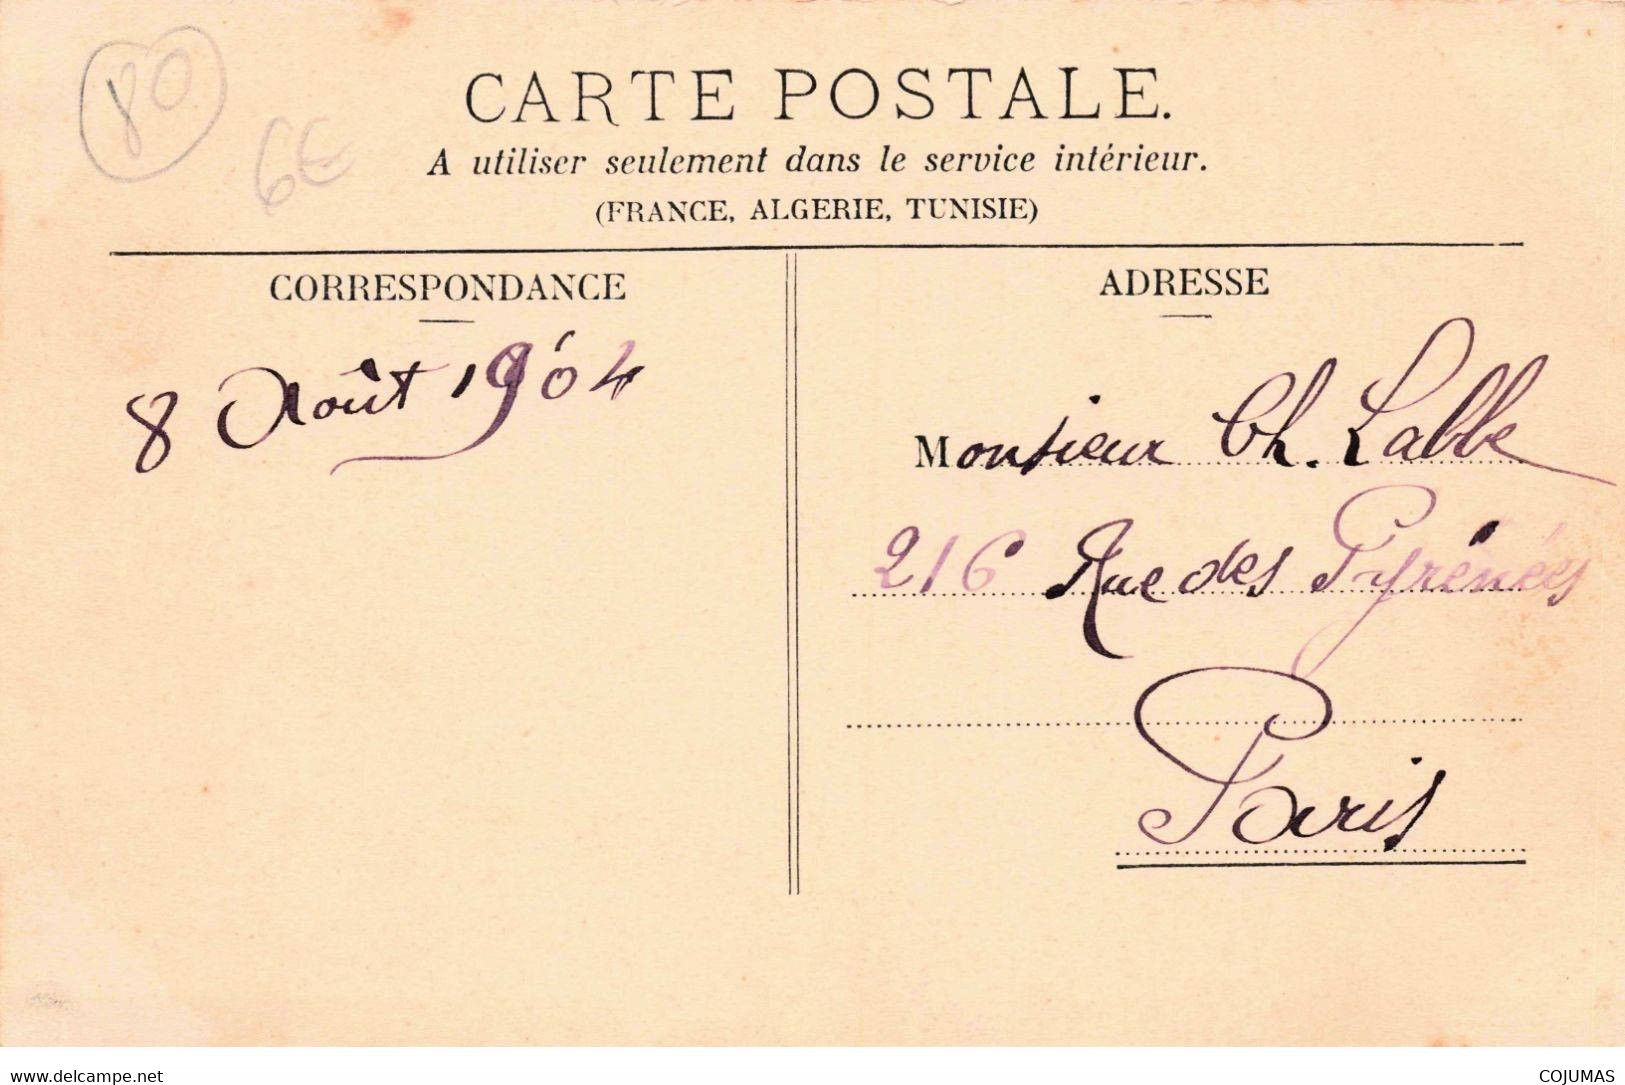 80
6€
CARTE POSTALE.
A utiliser seulement dans le service intérieur.
(FRANCE, ALGERIE, TUNISIE)
CORRESPONDANCE
8 Août 1904
ADRESSE
Monsieur Ch. Labbe
216 Rue des Pyrénées
Paris
www.delcampe.net
COJUMAS